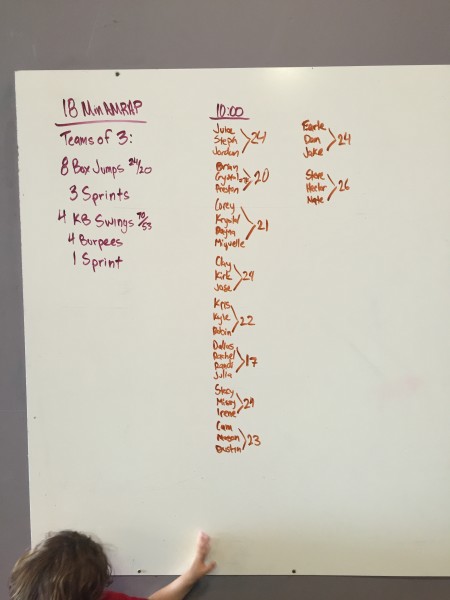 18 Min AMRAP
Teams of 3:
8 Box Jumps 24/20
3 Sprints
4 KB Swings 70/53
4 Burpees
1 Sprint
10:00
Juice
Steph 24
Jordan
Brian
Crystal 20
Preston
Corey
Krystal 21
Miquelle
Clay
Kirk 24
Jose
Kris
Kyle 22
Robin
Dallas
Rachel 17
Randi
Julia
Stacy
Missy 24
Irene
Cam
Megan 23
Dustin
Earle
Dan 24
Jake
Steve
Hector 26
Nate